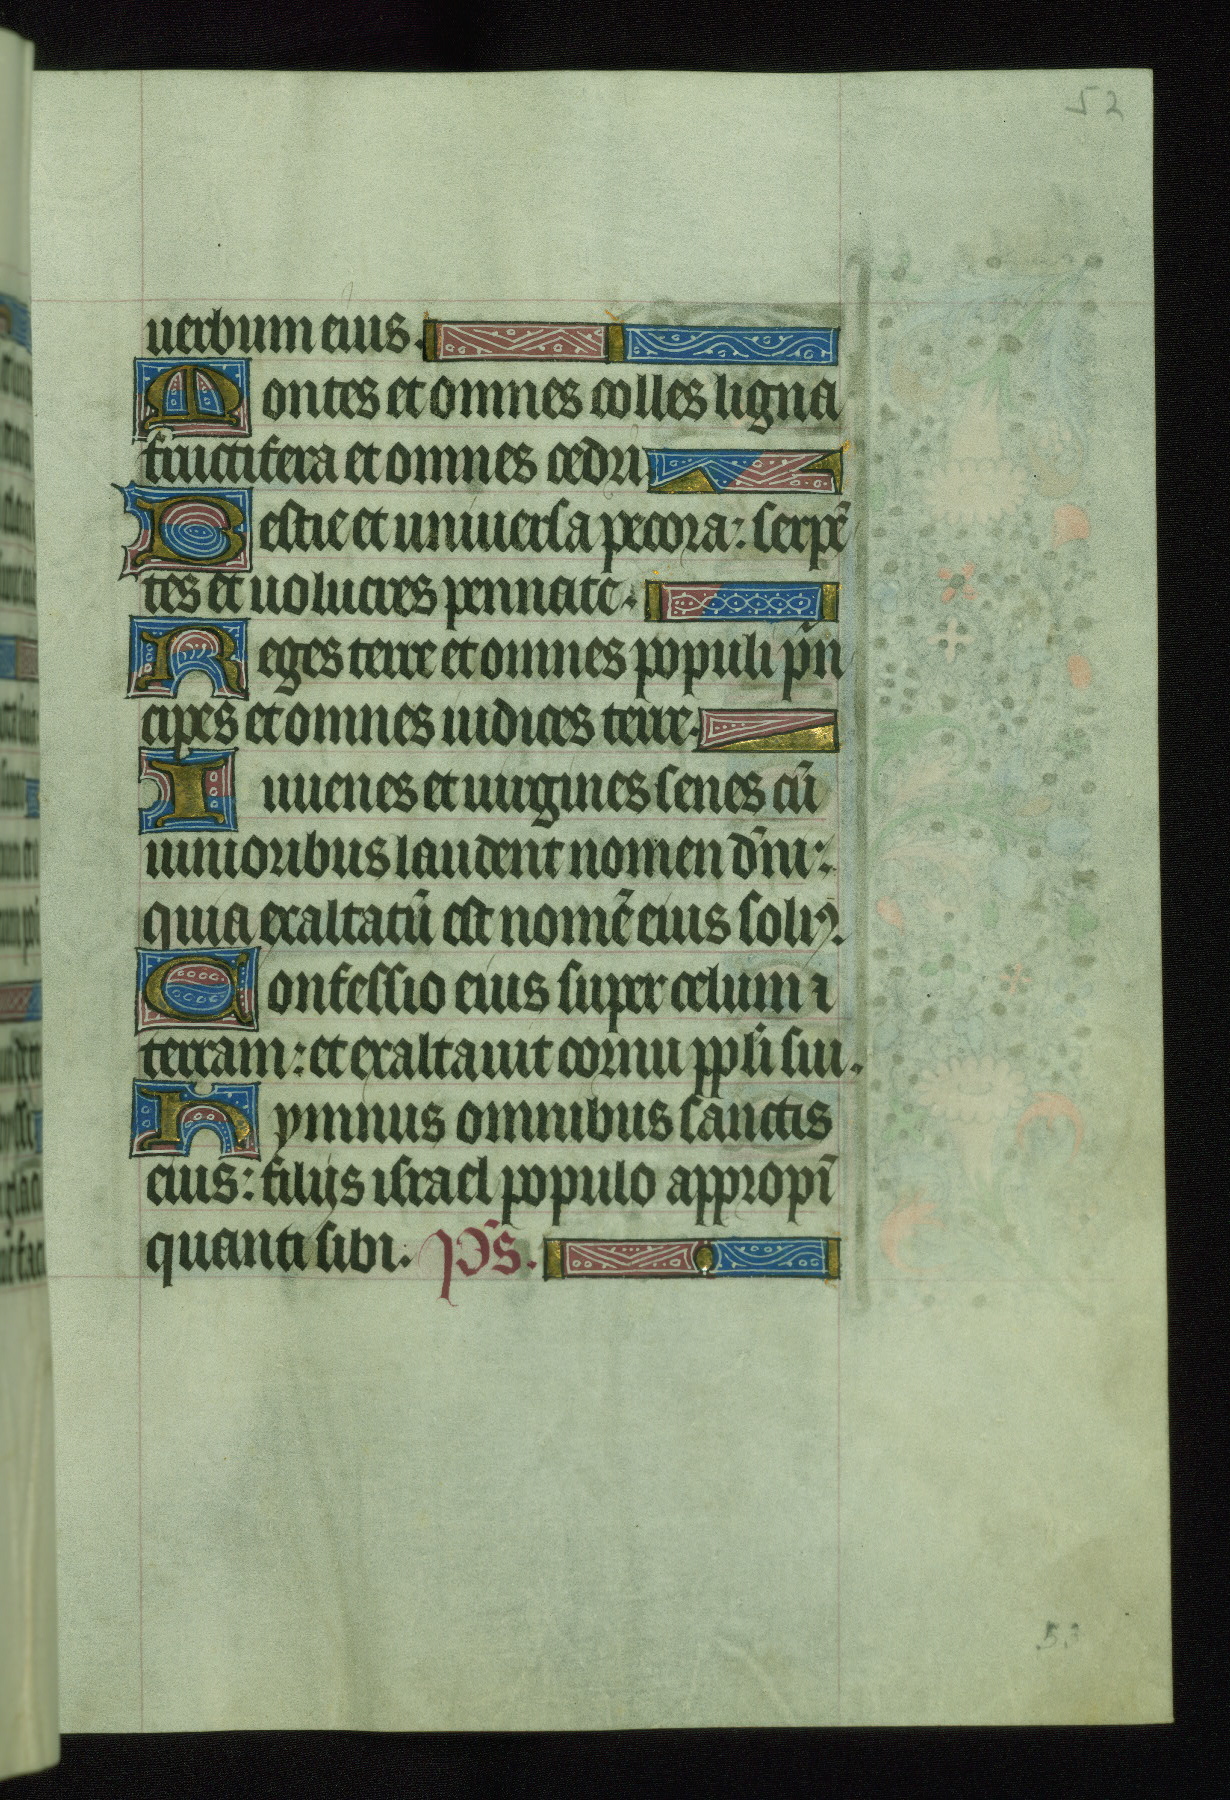 52
uerbum eius.
Montes et omnes colles ligna
fructifera et omnes cedri.
Bestie et uniuersa pecora: serpē
tes et uolucres pennate.
Reges terre et omnes populi p̄n
cipes et omnes iudices terre.
Iuuenes et uirgines senes cū
iunioribus laudent nomen dn̄i:
quia exaltatū est nomē eius soliꝰ.
Confessio eius super celum ⁊
terram: et exaltauit cornu ppl̄i sui.
Hymnus omnibus sanctis
eius: filijs israel populo appropī
quanti sibi. p̄s.
53